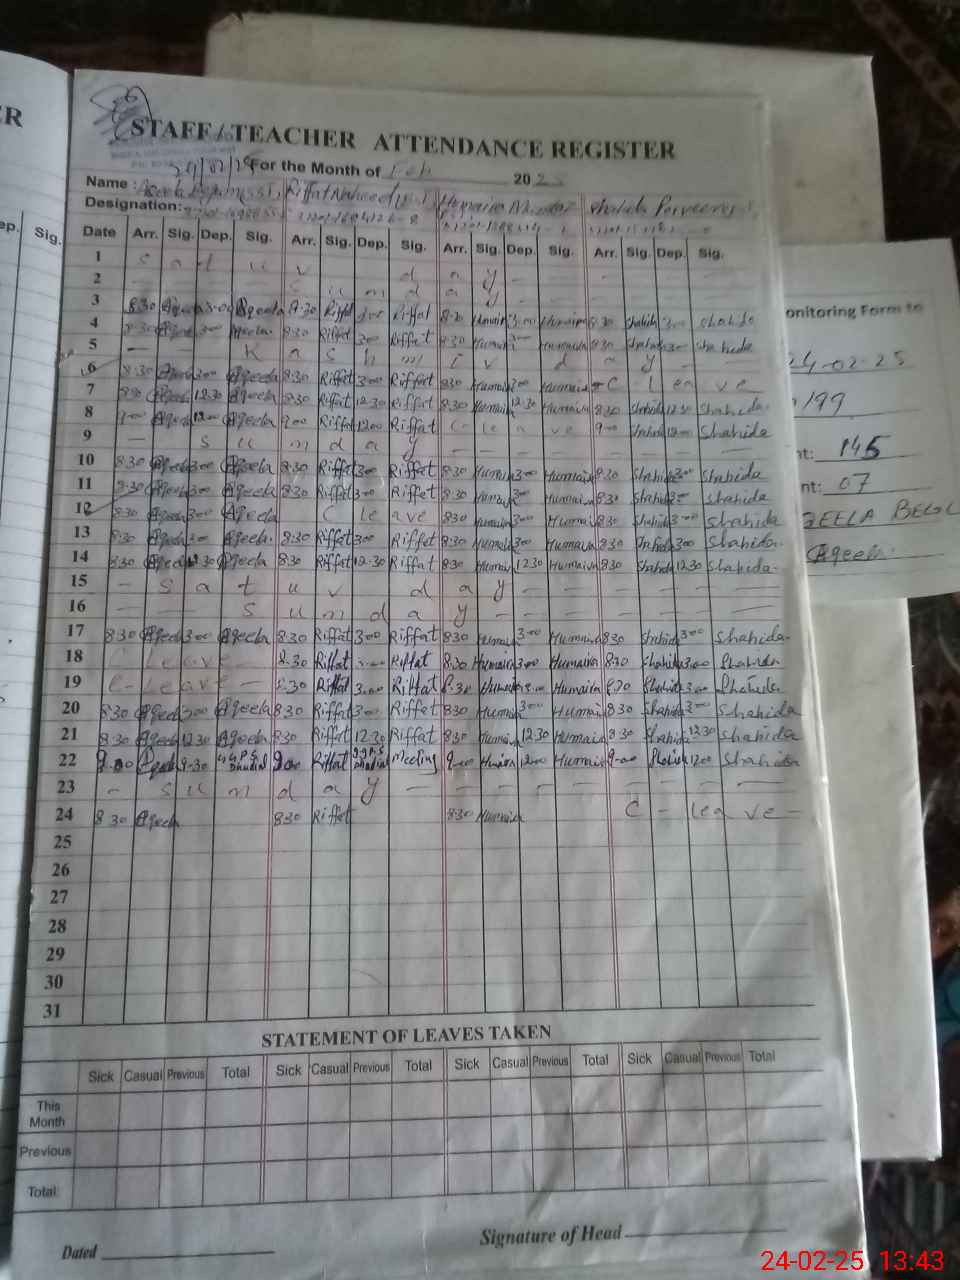 ER
STAFF/TEACHER ATTENDANCE REGISTER
24/02/25 For the Month of Feb 2025
Name: Riffat Naheed Humaira Shahida Perveen
Designation:
ep. Sig. Date Arr. Sig. Dep. Sig. Arr. Sig. Dep. Sig. Arr. Sig. Dep. Sig. Arr. Sig. Dep. Sig.
1 S a t u r d a y
2 S u n d a y
3 8:30 Aqeela 3:00 Aqeela 8:30 Riffat 3:00 Riffat 8:30 Humaira 3:00 Humaira 8:30 Shahida 3:00 Shahida
4 8:30 Aqeela 3:00 Aqeela 8:30 Riffat 3:00 Riffat 8:30 Humaira 3:00 Humaira 8:30 Shahida 3:00 Shahida
5 — K a s h m i r d a y —
6 8:30 Aqeela 3:00 Aqeela 8:30 Riffat 3:00 Riffat 8:30 Humaira 3:00 Humaira C Leave
7 8:30 Aqeela 12:30 Aqeela 8:30 Riffat 12:30 Riffat 8:30 Humaira 12:30 Humaira 8:30 Shahida 12:30 Shahida
8 9:00 Aqeela 12:00 Aqeela 9:00 Riffat 12:00 Riffat C - leave 9:00 Shahida 12:00 Shahida
9 — S u n d a y — — —
10 8:30 Aqeela 3:00 Aqeela 8:30 Riffat 3:00 Riffat 8:30 Humaira 3:00 Humaira 8:30 Shahida 3:00 Shahida
11 8:30 Aqeela 3:00 Aqeela 8:30 Riffat 3:00 Riffat 8:30 Humaira 3:00 Humaira 8:30 Shahida 3:00 Shahida
12 8:30 Aqeela 3:00 Aqeela C leave 8:30 Humaira 3:00 Humaira 8:30 Shahida 3:00 Shahida
13 8:30 Aqeela 3:00 Aqeela 8:30 Riffat 3:00 Riffat 8:30 Humaira 3:00 Humaira 8:30 Shahida 3:00 Shahida
14 8:30 Aqeela 12:30 Aqeela 8:30 Riffat 12:30 Riffat 8:30 Humaira 12:30 Humaira 8:30 Shahida 12:30 Shahida
15 - S a t u r d a y - - -
16 — — S u n d a y - - -
17 8:30 Aqeela 3:00 Aqeela 8:30 Riffat 3:00 Riffat 8:30 Humaira 3:00 Humaira 8:30 Shahida 3:00 Shahida
18 C Leave - 8:30 Riffat 3:00 Riffat 8:30 Humaira 3:00 Humaira 8:30 Shahida 3:00 Shahida
19 C - Leave - 8:30 Riffat 3:00 Riffat 8:30 Humaira 3:00 Humaira 8:30 Shahida 3:00 Shahida
20 8:30 Aqeela 3:00 Aqeela 8:30 Riffat 3:00 Riffat 8:30 Humaira 3:00 Humaira 8:30 Shahida 3:00 Shahida
21 8:30 Aqeela 12:30 Aqeela 8:30 Riffat 12:30 Riffat 8:30 Humaira 12:30 Humaira 8:30 Shahida 12:30 Shahida
22 Aqeela 9:30 9:00 Riffat Meeting 9:00 Humaira 12:00 Humaira 9:00 Shahida 12:00 Shahida
23 - S u n d a y — — —
24 8:30 Aqeela 8:30 Riffat 8:30 Humaira C - leave -
25
26
27
28
29
30
31
STATEMENT OF LEAVES TAKEN
Sick Casual Previous Total Sick Casual Previous Total Sick Casual Previous Total Sick Casual Previous Total
This Month
Previous
Total:
Signature of Head
Dated
onitoring Form to
24-02-25
199
nt: 145
nt: 07
Aqeela
24-02-25 13:43